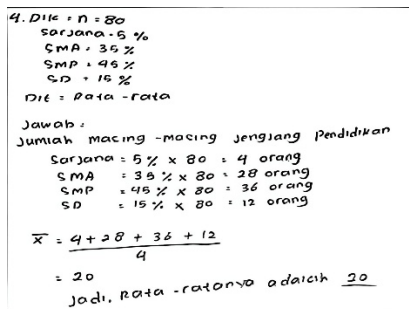 4. Dik : n = 80
Sarjana = 5 %
SMA = 35 %
SMP = 45 %
SD = 15 %
Dit = Rata - rata
Jawab :
Jumlah macing - macing jengjang Pendidikan
Sarjana = 5 % x 80 = 4 orang
SMA = 35 % x 80 = 28 orang
SMP = 45 % x 80 = 36 orang
SD = 15 % x 80 = 12 orang
x̄ = 4 + 28 + 36 + 12
4
= 20
Jadi, Rata - ratanya adalah 20